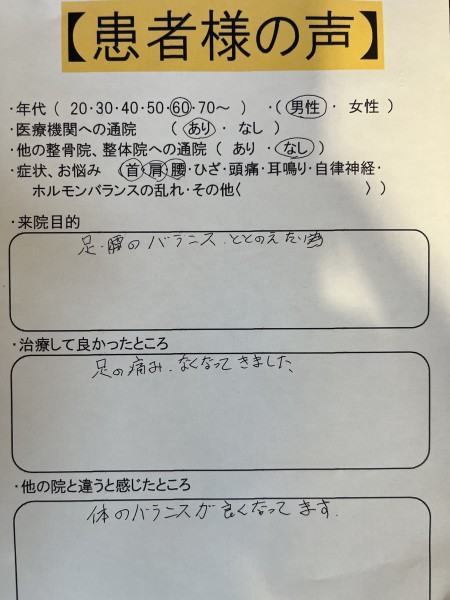 【患者様の声】
・年代（ 20・30・40・50・60・70～ ）・（ 男性 ・ 女性 ）
・医療機関への通院 （ あり ・ なし ）
・他の整骨院、整体院への通院（ あり ・ なし ）
・症状、お悩み （首・肩・腰・ひざ・頭痛・耳鳴り・自律神経・
ホルモンバランスの乱れ・その他〈 〉）
・来院目的
足・腰のバランス、ととのえたい為
・治療して良かったところ
足の痛み、なくなってきました、
・他の院と違うと感じたところ
体のバランスが良くなってます.